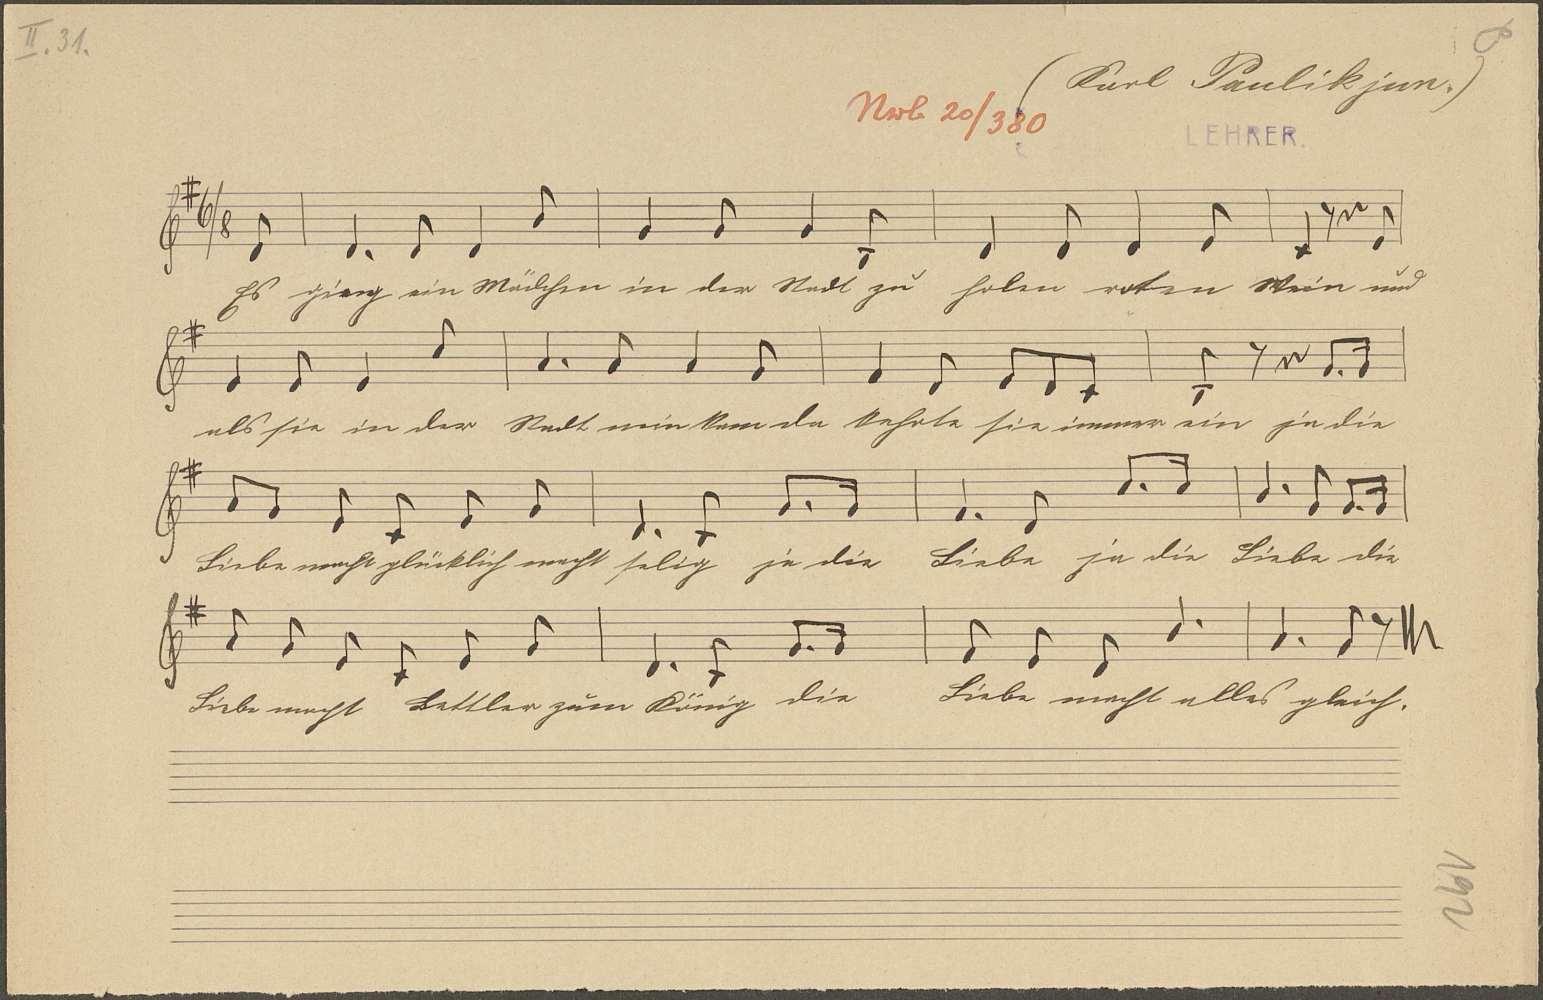 II. 31.
(Karl Paulik jun.)
20/380
LEHRER.
6/8
Es gieng ein Mädchen in der Stadt zu holen roten Wein und
als sie in der Stadt nein kam da kehrte sie immer ein ja die
Liebe macht glücklich macht selig ja die Liebe ja die Liebe die
Liebe macht Bettler zum König die Liebe macht alles gleich.